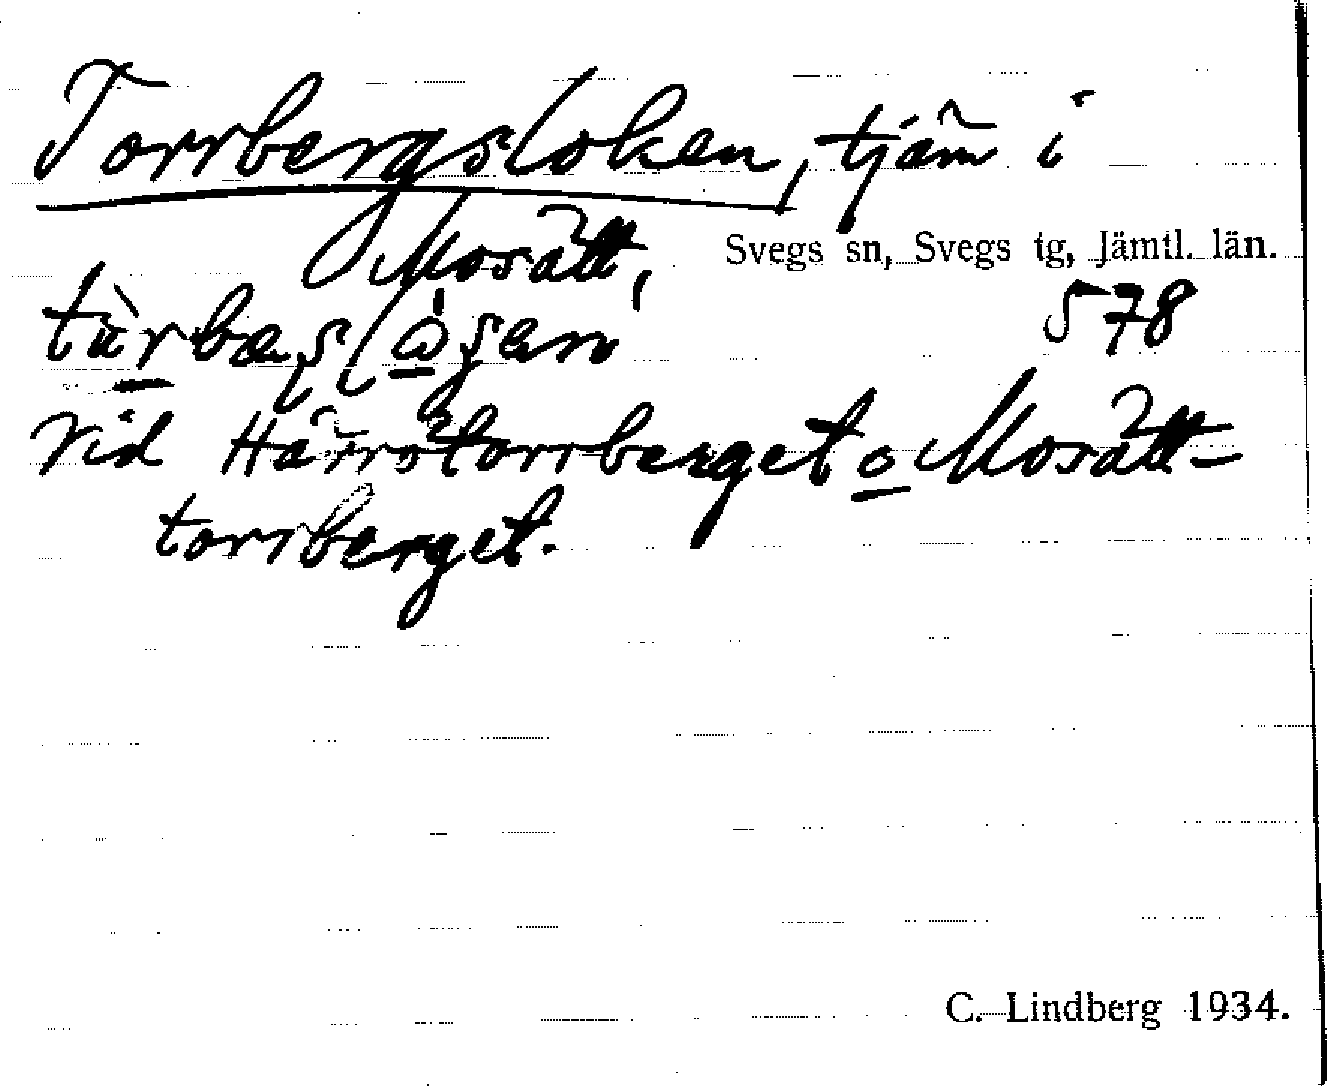 Torrbergsloken, tjärn i
Mosätt, Svegs sn, Svegs tg, Jämtl. län.
578
Vid Härrötorrberget o Mosätt-
torrberget.
C. Lindberg 1934.